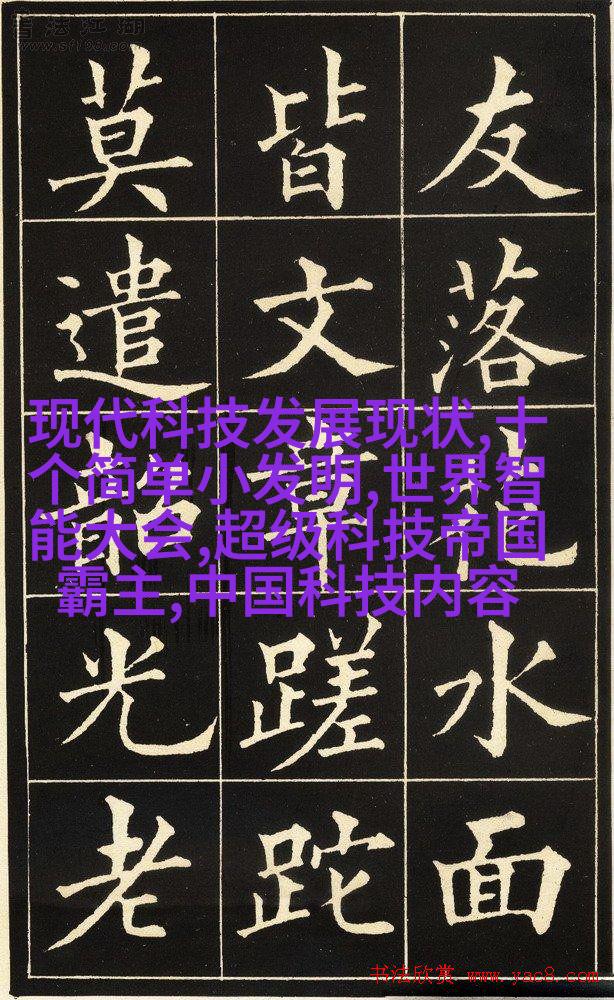 书法江湖
www.sf108.com
友落花水面
皆文章蹉跎
莫遣韶光老
现代科技发展现状,十
个简单小发明,世界智
能大会,超级科技帝国
霸主,中国科技内容
书法欣赏 www.yac8.com